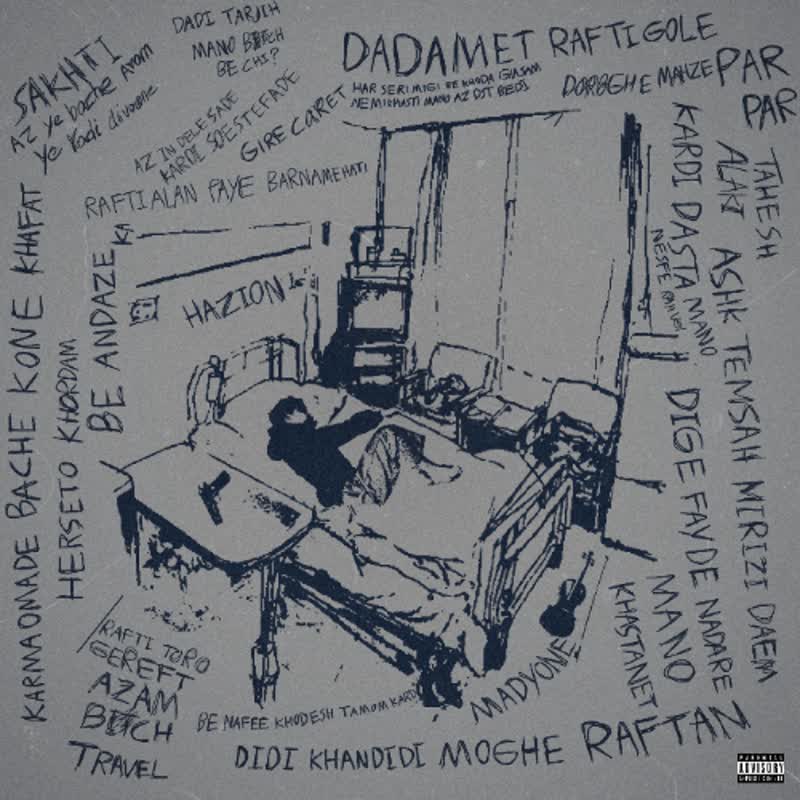 SAKHTI
AZ ye bache Arom
ye Radi divoone
DADI TARJIH
MANO BITCH
BE CHI?
DADAMET RAFTI GOLE
HAR SERI MIGI BE KHODA GHASAM
NEMIKHASTI MANO AZ DST BEDI
DOROGHE MAHZE
PAR
PAR
AZ IN DELE SADE
KARDI SOESTEFADE
GIRE CARET
RAFTI ALAN PAYE BARNAMEHATI
TAHESH
ALAKI ASHK TEMSAH MIRIZI DAEM
KARDI DASTA MANO
DIGE FAYDE NADARE
MANO
KHASTANET
KARMA OMADE BACHE KONE KHAFAT
HERSETO KHORDAM
BE ANDAZE
HAZION
RAFTI TORO
GEREFT
AZAM
BITCH
TRAVEL
BE NAFEE KHODESH TAMOM KARD
MADYONE
DIDI KHANDIDI MOGHE RAFTAN
PARENTAL
ADVISORY
EXPLICIT CONTENT